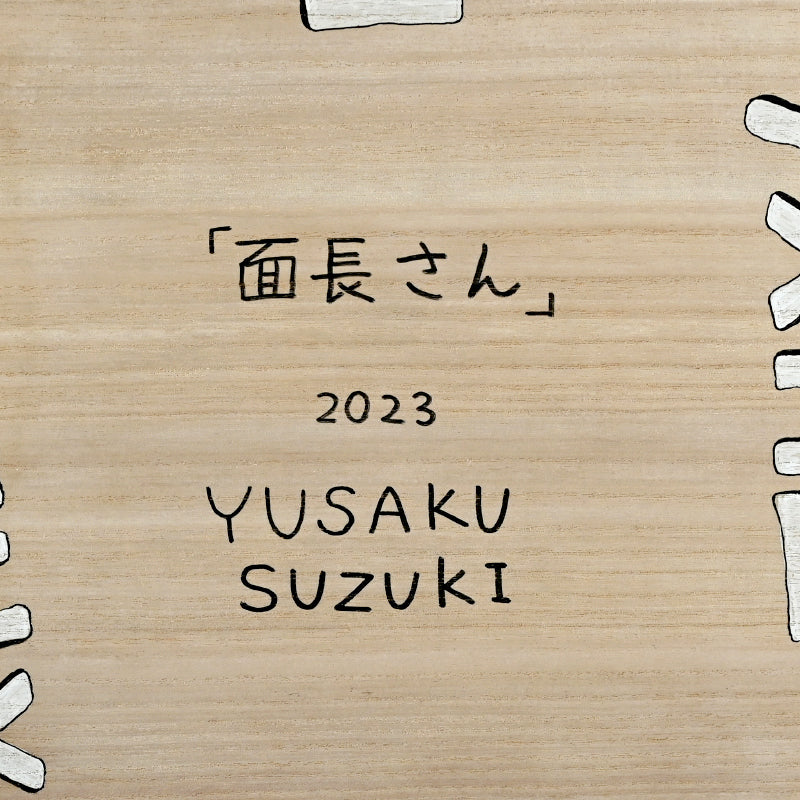 「面長さん」
2023
YUSAKU
SUZUKI